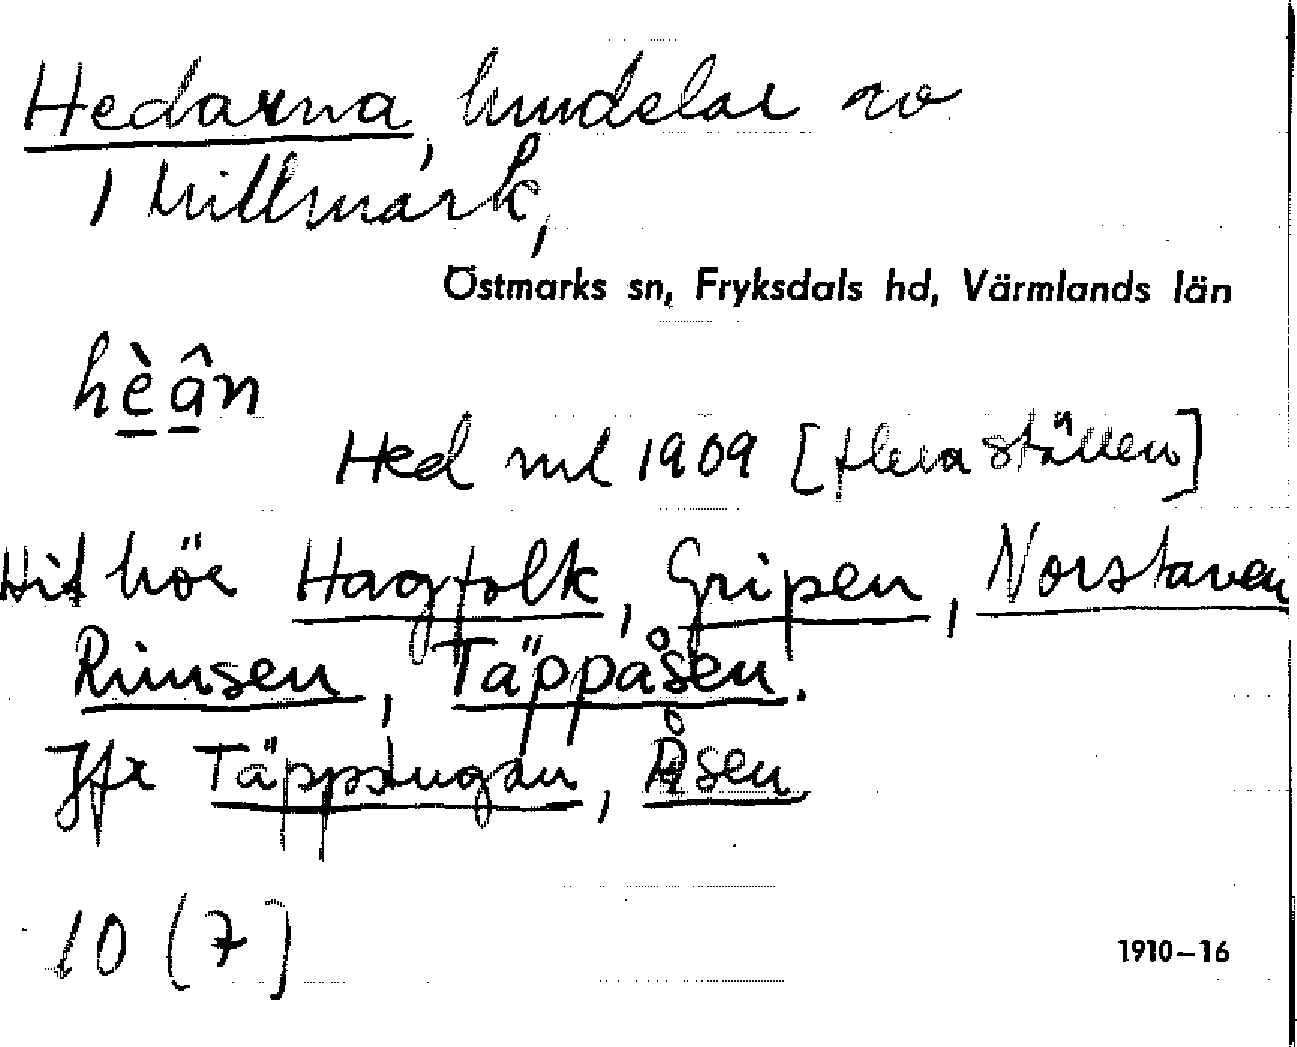 Hedarna, hmdelar av
1 Millmark,
Östmarks sn, Fryksdals hd, Värmlands län
hèân
Hed ml 1909 [flera ställen]
Hit hör Hagfolk, Gripen, Norstaven
Rimsen, Täppåsen.
Jfr Täppstugan, Åsen
10 (7)
1910–16